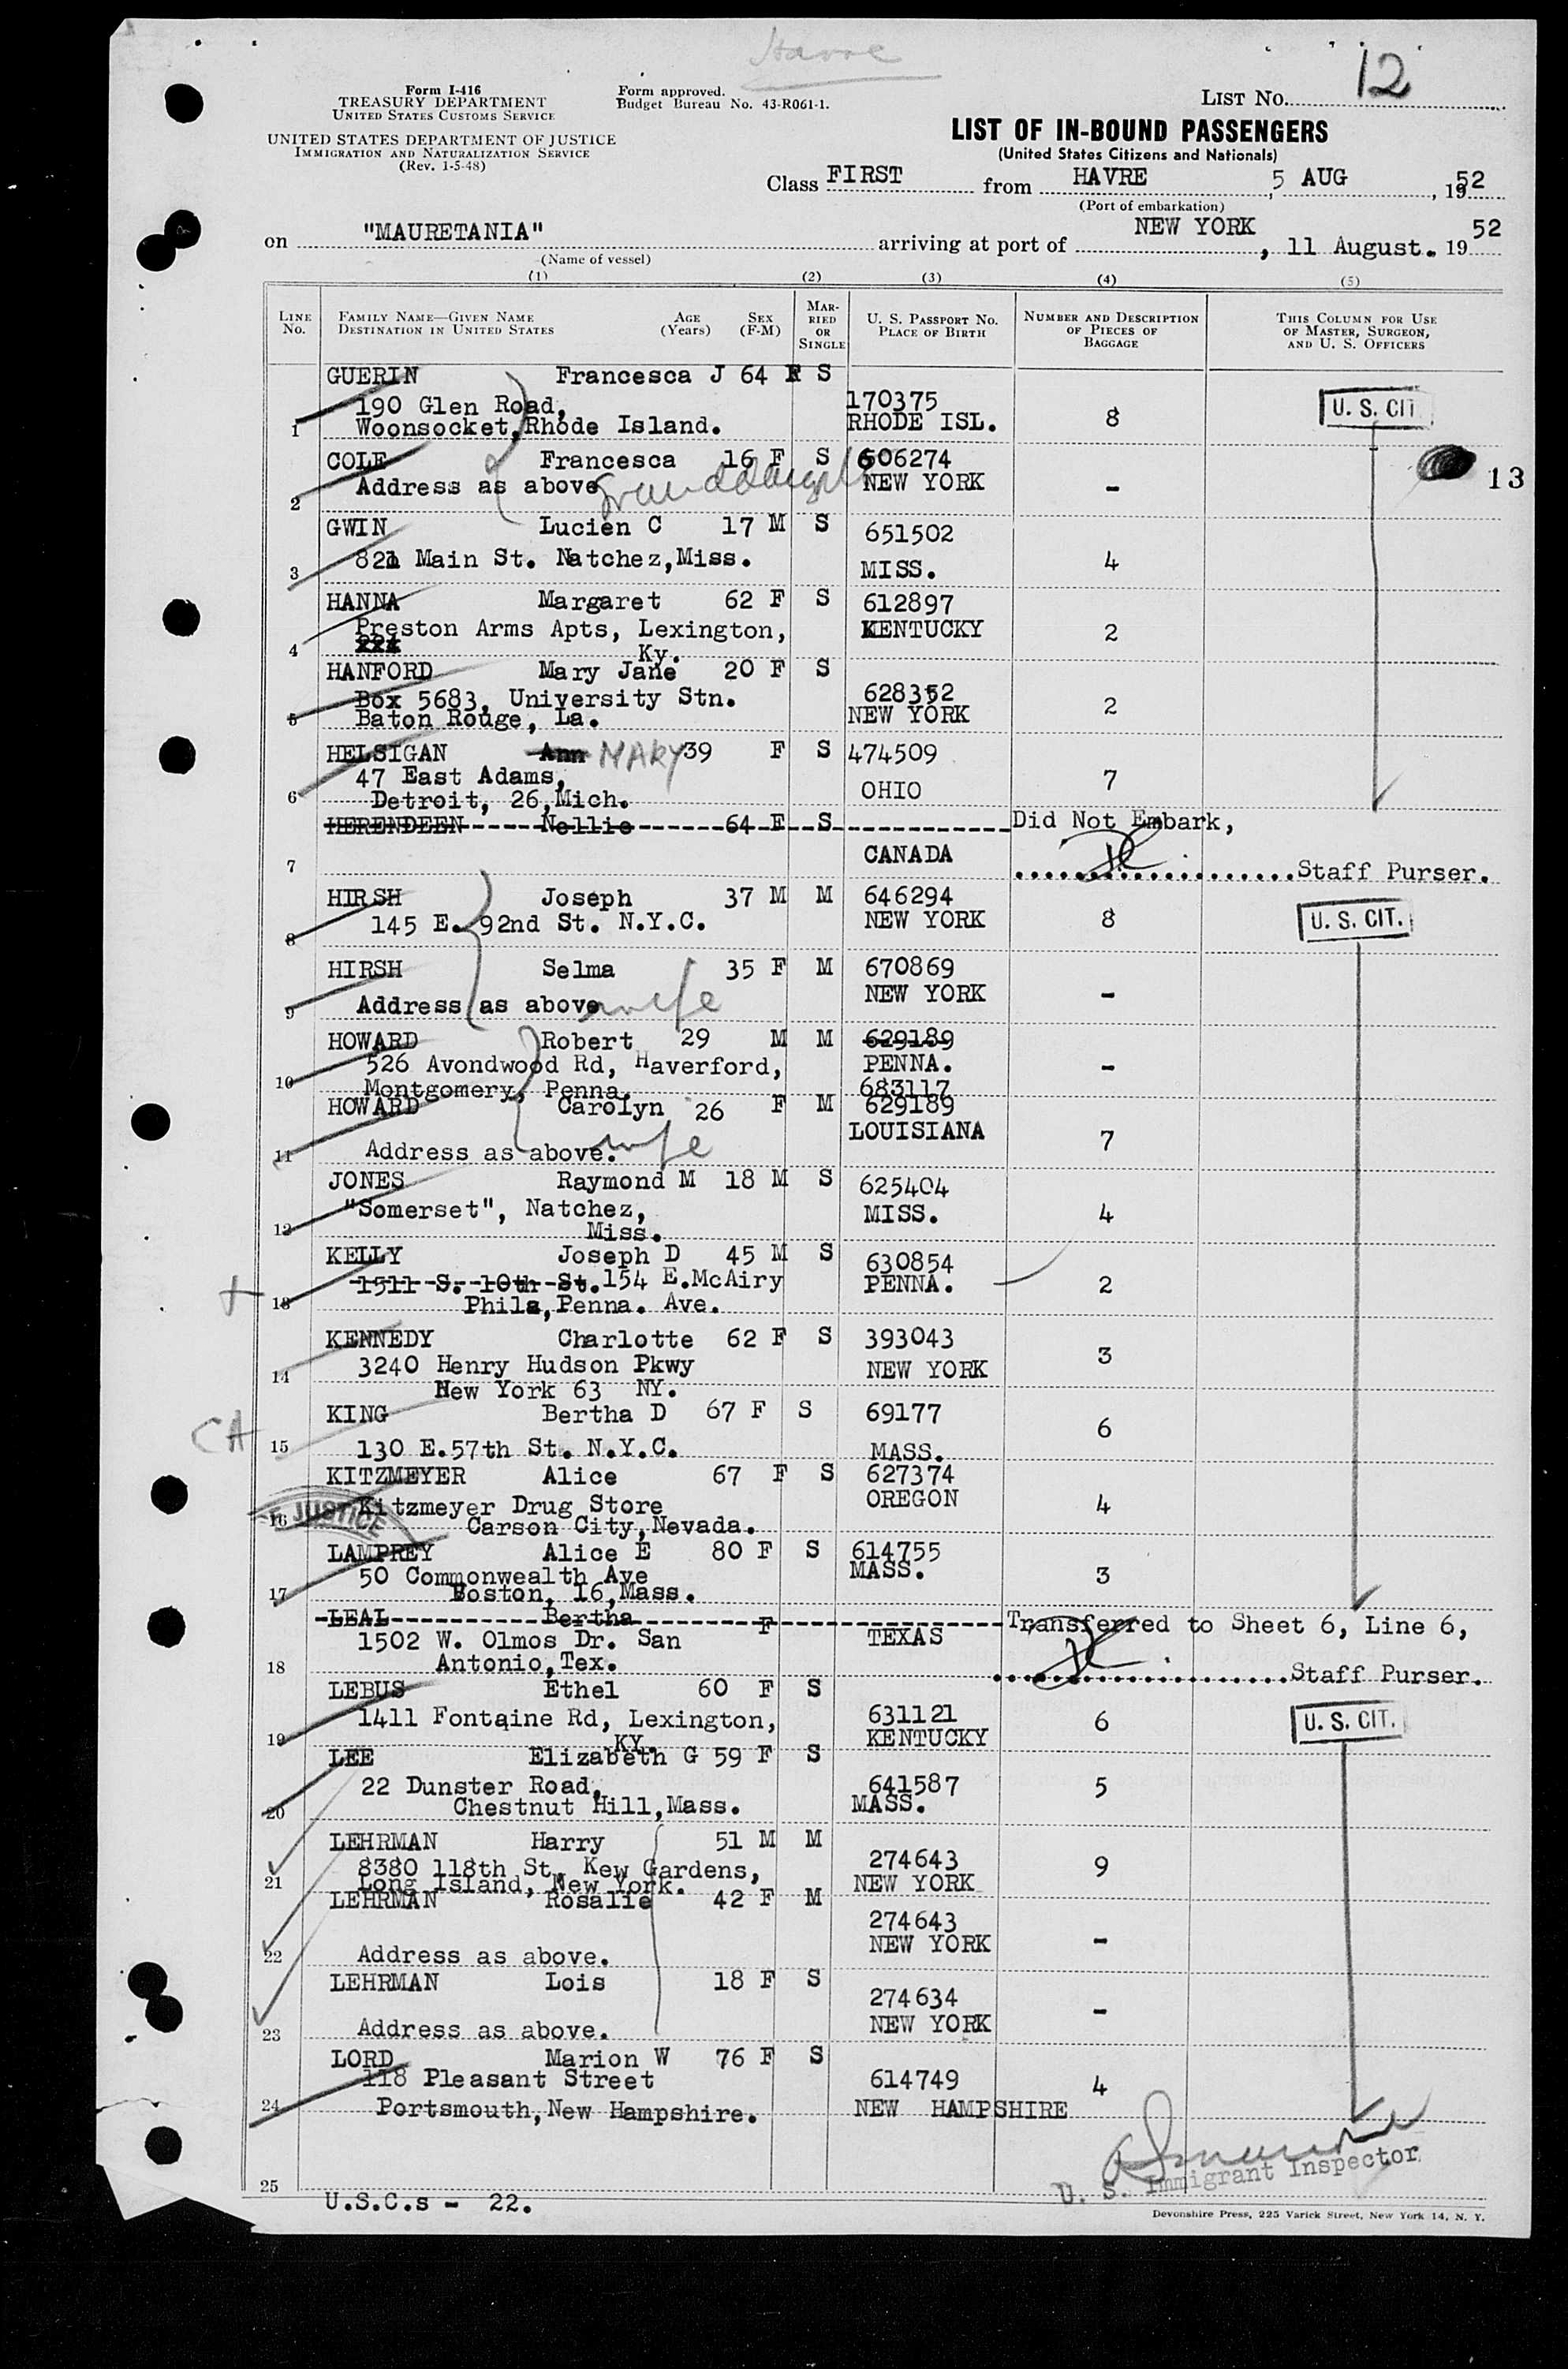 Havre
12
Form I-416
TREASURY DEPARTMENT
UNITED STATES CUSTOMS SERVICE
UNITED STATES DEPARTMENT OF JUSTICE
IMMIGRATION AND NATURALIZATION SERVICE
(Rev. 1-5-48)
Form approved.
Budget Bureau No. 43-R061-1.
LIST NO.
LIST OF IN-BOUND PASSENGERS
(United States Citizens and Nationals)
Class FIRST from HAVRE, 5 AUG, 1952
(Port of embarkation)
on "MAURETANIA" arriving at port of NEW YORK, 11 August. 1952
(Name of vessel)
(1) (2) (3) (4) (5)
LINE NO.
FAMILY NAME—GIVEN NAME
DESTINATION IN UNITED STATES
AGE (Years)
SEX (F-M)
MARRIED OR SINGLE
U. S. PASSPORT NO.
PLACE OF BIRTH
NUMBER AND DESCRIPTION OF PIECES OF BAGGAGE
THIS COLUMN FOR USE OF MASTER, SURGEON, AND U. S. OFFICERS
GUERIN Francesca J 64 F S
190 Glen Road, 170375 U. S. CIT
1 Woonsocket, Rhode Island. RHODE ISL. 8
COLE Francesca 16 F S 606274
2 Address as above NEW YORK - 13
GWIN Lucien C 17 M S 651502
3 821 Main St. Natchez, Miss. MISS. 4
HANNA Margaret 62 F S 612897
4 Preston Arms Apts, Lexington, KENTUCKY 2
Ky.
HANFORD Mary Jane 20 F S
Box 5683, University Stn. 628352
5 Baton Rouge, La. NEW YORK 2
HELSIGAN Ann MARY 39 F S 474509
47 East Adams,
6 Detroit, 26, Mich. OHIO 7
HERENDEEN Nellie 64 F S Did Not Embark,
7 CANADA Staff Purser.
HIRSH Joseph 37 M M 646294
8 145 E. 92nd St. N.Y.C. NEW YORK 8 U. S. CIT.
HIRSH Selma 35 F M 670869
9 Address as above wife NEW YORK -
HOWARD Robert 29 M M 629189
526 Avondwood Rd, Haverford, PENNA. -
10 Montgomery, Penna. 683117
HOWARD Carolyn 26 F M 629189
LOUISIANA
11 Address as above. wife 7
JONES Raymond M 18 M S 625404
12 "Somerset", Natchez, MISS. 4
Miss.
KELLY Joseph D 45 M S 630854
13 1511 S. 10th St. 154 E. McAiry PENNA. 2
Phila, Penna. Ave.
KENNEDY Charlotte 62 F S 393043
14 3240 Henry Hudson Pkwy NEW YORK 3
New York 63 NY.
KING Bertha D 67 F S 69177
CA 15 130 E. 57th St. N.Y.C. MASS. 6
KITZMEYER Alice 67 F S 627374
16 Kitzmeyer Drug Store OREGON 4
JUSTICE
Carson City, Nevada.
LAMPREY Alice E 80 F S 614755
50 Commonwealth Ave MASS. 3
17 Boston, 16, Mass.
LEAL Bertha F Transferred to Sheet 6, Line 6,
1502 W. Olmos Dr. San TEXAS
18 Antonio, Tex. Staff Purser.
LEBUS Ethel 60 F S
1411 Fontaine Rd, Lexington, 631121 6 U. S. CIT.
19 KY. KENTUCKY
LEE Elizabeth G 59 F S
22 Dunster Road, 641587 5
20 Chestnut Hill, Mass. MASS.
LEHRMAN Harry 51 M M
8380 118th St. Kew Gardens, 274643 9
21 Long Island, New York. NEW YORK
LEHRMAN Rosalie 42 F M
274643
22 Address as above. NEW YORK -
LEHRMAN Lois 18 F S
274634 -
23 Address as above. NEW YORK
LORD Marion W 76 F S
118 Pleasant Street 614749 4
24 Portsmouth, New Hampshire. NEW HAMPSHIRE
25
U. S. Immigrant Inspector
U.S.C.s - 22.
Devonshire Press, 225 Varick Street, New York 14, N. Y.